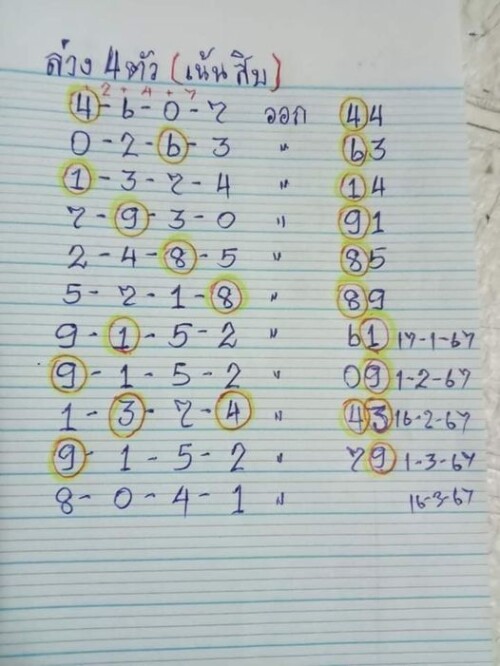 ล่าง 4 ตัว (เน้นสิบ)
+ 2 + 4 + 7
4 - 6 - 0 - 7 ออก 44
0 - 2 - 6 - 3 " 63
1 - 3 - 7 - 4 " 14
7 - 9 - 3 - 0 " 91
2 - 4 - 8 - 5 " 85
5 - 7 - 1 - 8 " 89
9 - 1 - 5 - 2 " 61 17-1-67
9 - 1 - 5 - 2 " 09 1-2-67
1 - 3 - 7 - 4 " 43 16-2-67
9 - 1 - 5 - 2 " 79 1-3-67
8 - 0 - 4 - 1 " 16-3-67